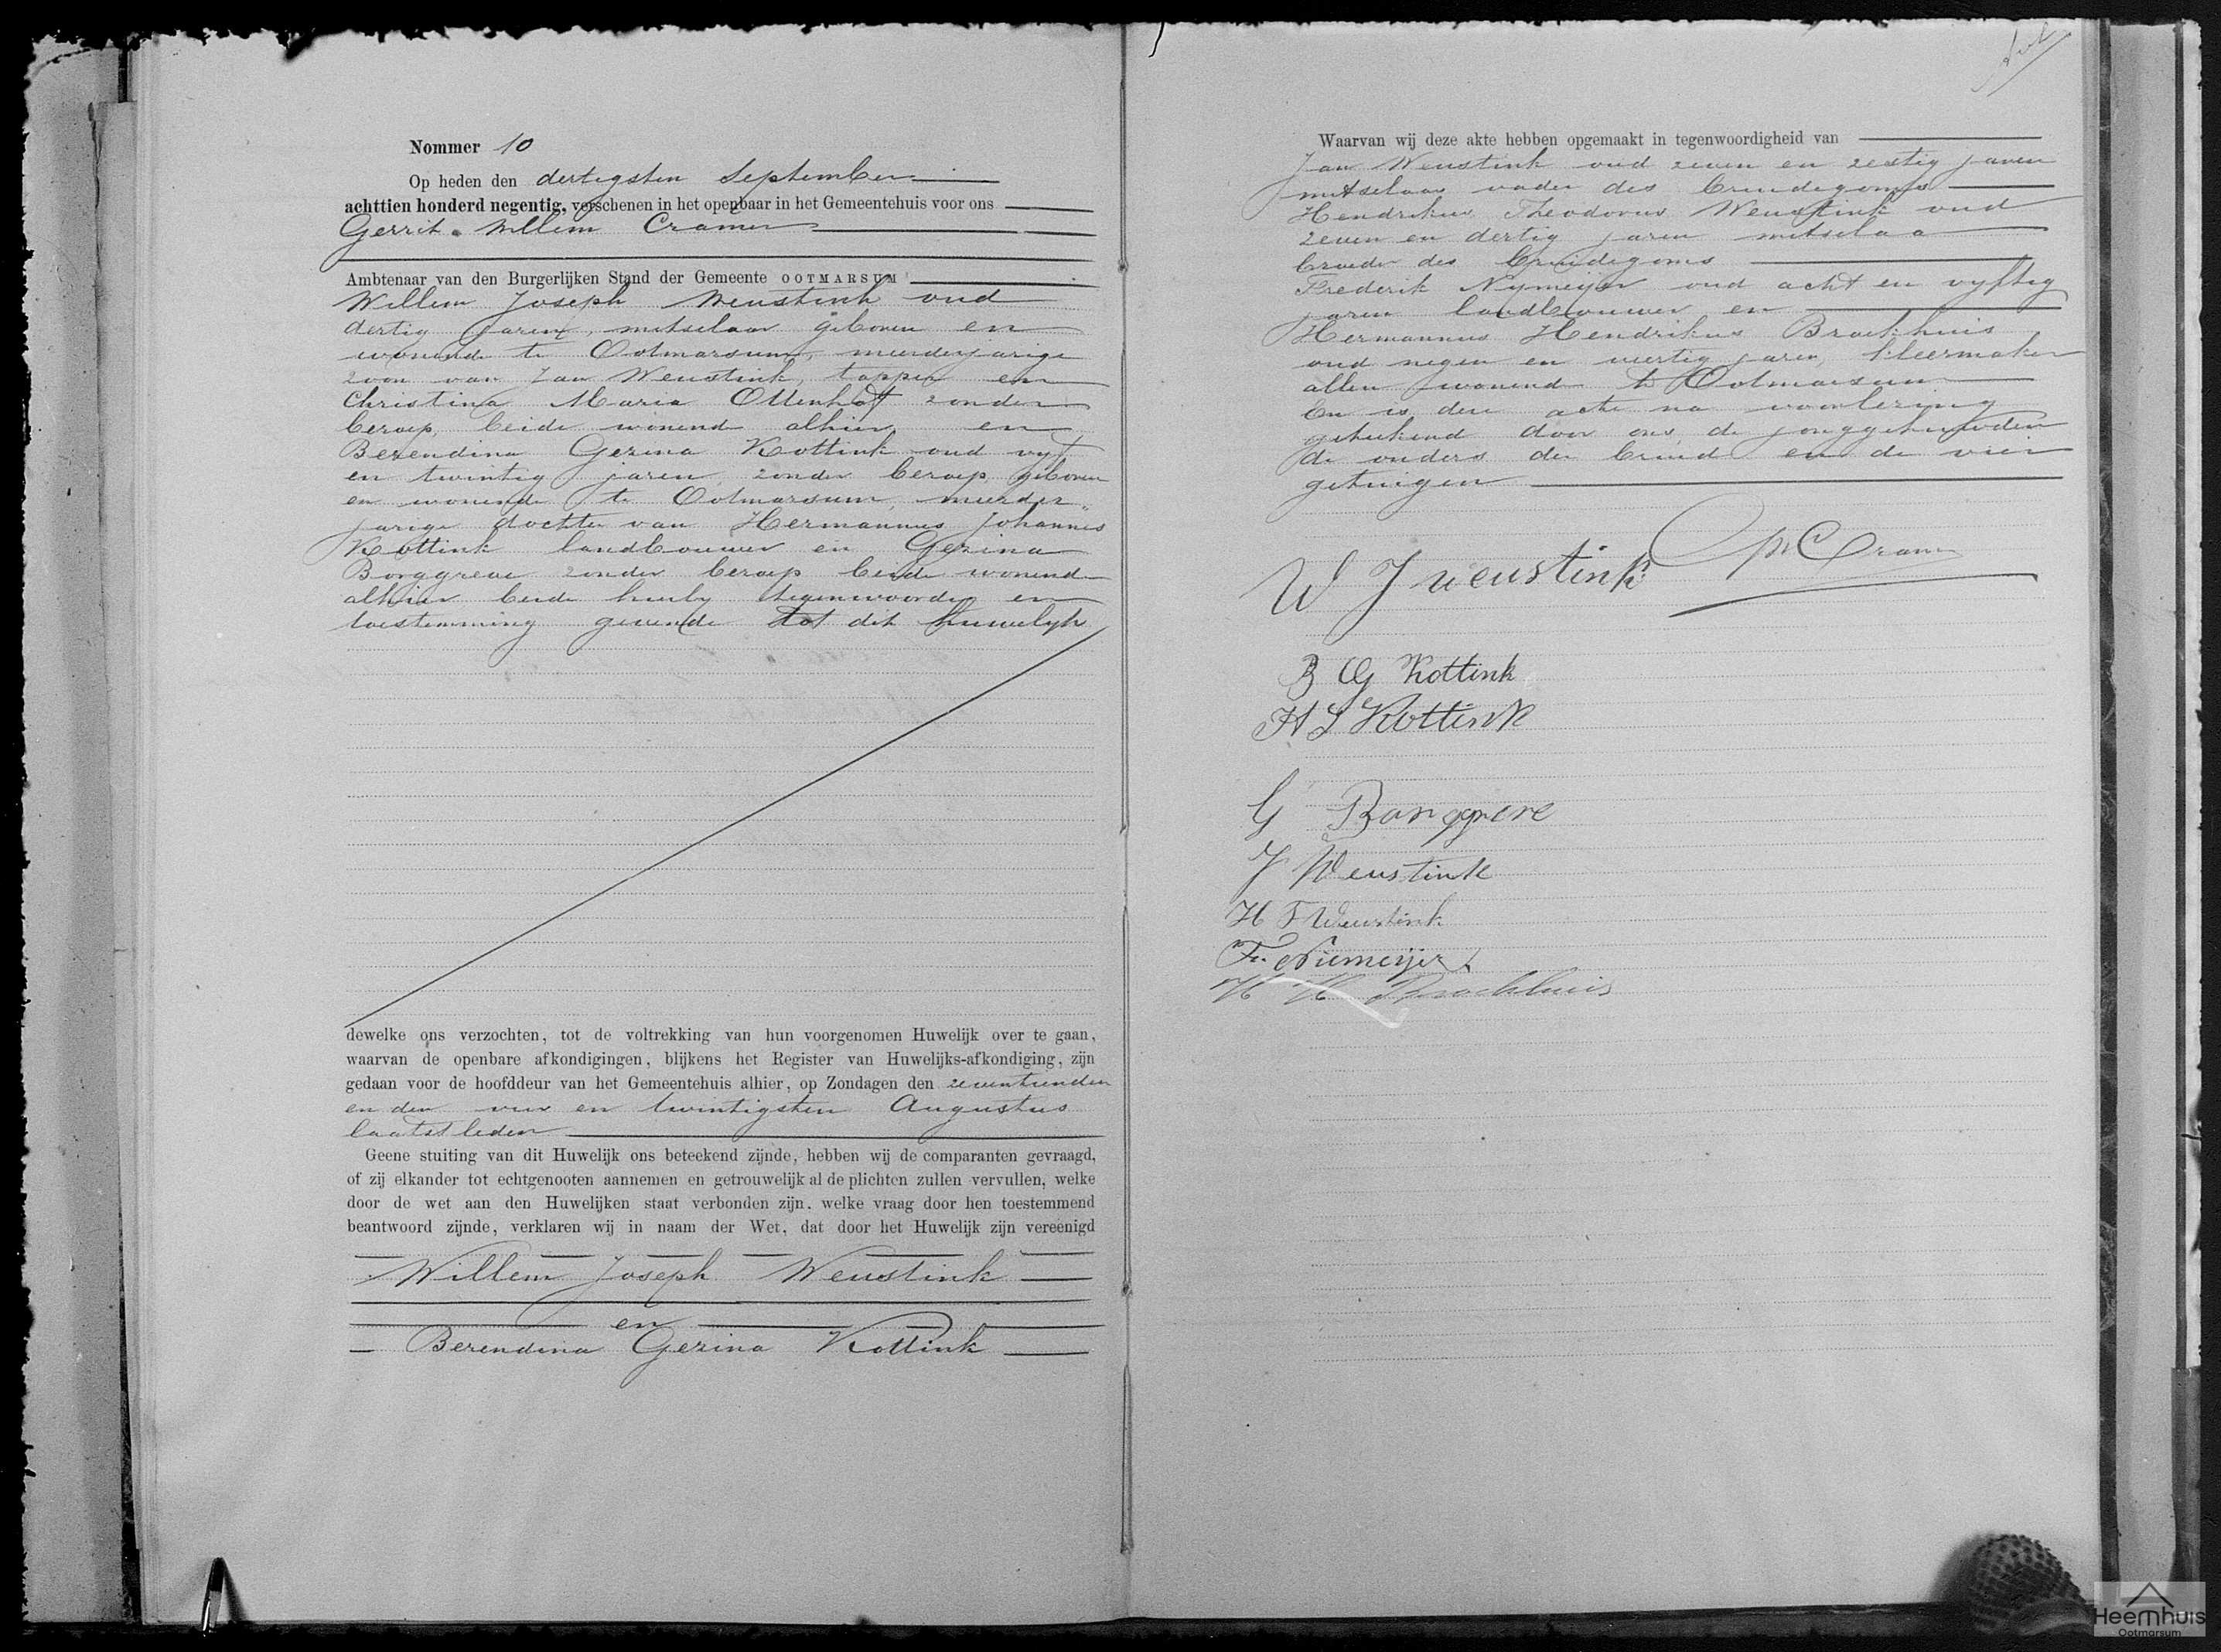 Nommer 10
Op heden den dertigsten September
achttien honderd negentig, verschenen in het openbaar in het Gemeentehuis voor ons
Gerrit Willem Cramer
Ambtenaar van den Burgerlijken Stand der Gemeente OOTMARSUM
Willem Joseph Weustink oud
dertig jaren, metselaar geboren en
wonende te Ootmarsum, meerderjarige
zoon van Jan Weustink, tapper en
Christina Maria Ottenhof zonder
beroep, beide wonend alhier, en
Berendina Gezina Kottink oud vyf
en twintig jaren, zonder beroep, geboren
en wonende te Ootmarsum, meerder„
jarige dochter van Hermannus Johannes
Kottink landbouwer en Gezina
Borggreve zonder beroep beide wonende
alhier beide hierby tegenwoordig en
toestemming gevende tot dit huwelyk
dewelke ons verzochten, tot de voltrekking van hun voorgenomen Huwelijk over te gaan,
waarvan de openbare afkondigingen, blijkens het Register van Huwelijks-afkondiging, zijn
gedaan voor de hoofddeur van het Gemeentehuis alhier, op Zondagen den zeventienden
en den vier en twintigsten Augustus
laatstleden
Geene stuiting van dit Huwelijk ons beteekend zijnde, hebben wij de comparanten gevraagd,
of zij elkander tot echtgenooten aannemen en getrouwelijk al de plichten zullen vervullen, welke
door de wet aan den Huwelijken staat verbonden zijn, welke vraag door hen toestemmend
beantwoord zijnde, verklaren wij in naam der Wet, dat door het Huwelijk zijn vereenigd
Willem Joseph Weustink
en
Berendina Gezina Kottink
Waarvan wij deze akte hebben opgemaakt in tegenwoordigheid van
Jan Weustink oud zeven en zestig jaren
metselaar vader des bruidegoms
Hendrikus Theodorus Weustink oud
zeven en dertig jaren metselaa
broeder des bruidegoms
Frederik Nymeijer oud acht en vyftig
jaren landbouwer en
Hermannus Hendrikus Broekhuis
oud negen en veertig jaren, kleermaker
allen wonende te Ootmarsum
En is deze acte na voorlezing
geteekend door ons, de jonggehuwden
de ouders der bruid en de vier
getuigen
Cramer
W J Weustink
B G Kottink
H J Kottink
G Borggreve
J Weustink
H T Weustink
Fr. Niemeijer
H H Broekhuis
Heemhuis
Ootmarsum